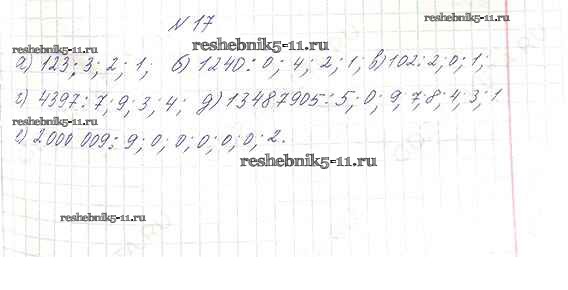 N 17
reshebnik5-11.ru
reshebnik5-11.ru
reshebnik5-11.ru
а) 123: 3; 2; 1; б) 1240: 0; 4; 2; 1; в) 102: 2; 0; 1;
г) 4397: 7; 9; 3; 4; д) 13487905: 5; 0; 9; 7; 8; 4; 3; 1
reshebnik5-11.ru
е) 2 000 009: 9; 0; 0; 0; 0; 0; 2.
reshebnik5-11.ru
reshebnik5-11.ru